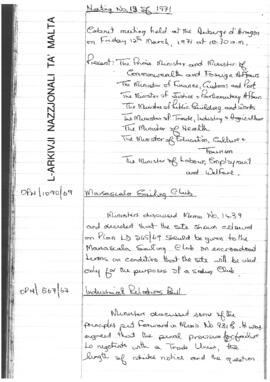 Meeting No. 13 of 1971
Cabinet meeting held at the Auberge d'Aragon
on Friday 12th March, 1971 at 10.30 a.m.
Present: The Prime Minister and Minister of
Commonwealth and Foreign Affairs
The Minister of Finance, Customs and Port
The Minister of Justice & Parliamentary Affairs
The Minister of Public Building and Works
The Minister of Trade, Industry & Agriculture
The Minister of Health
The Minister of Education, Culture &
Tourism
The Minister of Labour, Employment
and Welfare.
L-ARKIVJI NAZZJONALI TA' MALTA
OPM/1090/69
Marsascala Sailing Club
Ministers discussed Memo No. 1439
and decided that the site shown coloured
on Plan LD 265/69 should be given to the
Marsascala Sailing Club on
terms on condition that the site will be used
only for the purposes of a sailing Club.
OPM/667/67
Industrial Relations Bill
Ministers discussed some of the
principles put forward in Memo No. It was
agreed that the penal provisions for failure
to negotiate with a Trade Union, the
length of strike notice and the question